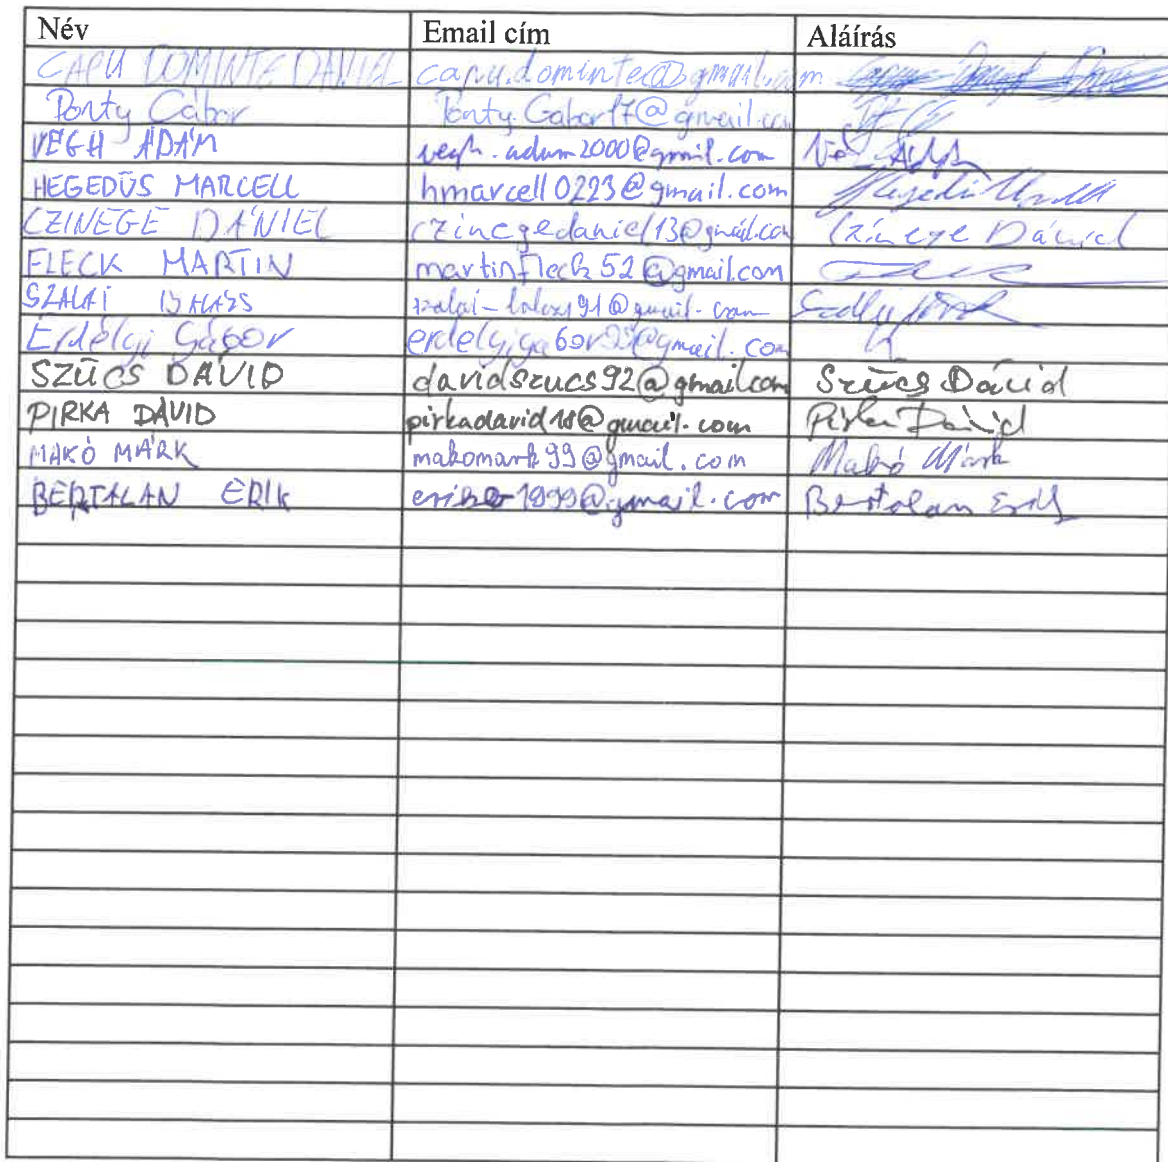 Név Email cím Aláírás
CAPU DOMINTE DANIEL capu.dominte@gmail.com
Ponty Gábor Ponty.Gabor17@gmail.com
VÉGH ÁDÁM vegh.adam2000@gmail.com
HEGEDŰS MARCELL hmarcell0223@gmail.com
CZINEGE DÁNIEL czinegedaniel13@gmail.com Czinege Dániel
FLECK MARTIN martinfleck52@gmail.com
SZALAI BALÁZS szalai-balazs91@gmail.com
Erdélyi Gábor erdelyigabor95@gmail.com
SZŰCS DÁVID davidszucs92@gmail.com Szűcs Dávid
PIRKA DÁVID pirkadavid18@gmail.com Pirka Dávid
MAKÓ MÁRK makomark99@gmail.com Makó Márk
BERTALAN ERIK Bertalan Erik